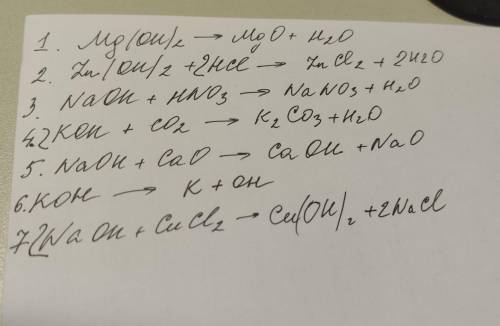 1. Mg(OH)2 → MgO + H2O
2. Zn(OH)2 + 2HCl → ZnCl2 + 2H2O
3. NaOH + HNO3 → NaNO3 + H2O
4. 2KOH + CO2 → K2CO3 + H2O
5. NaOH + CaO → CaOH + NaO
6. KOH → K + OH
7. 2NaOH + CuCl2 → Cu(OH)2 + 2NaCl